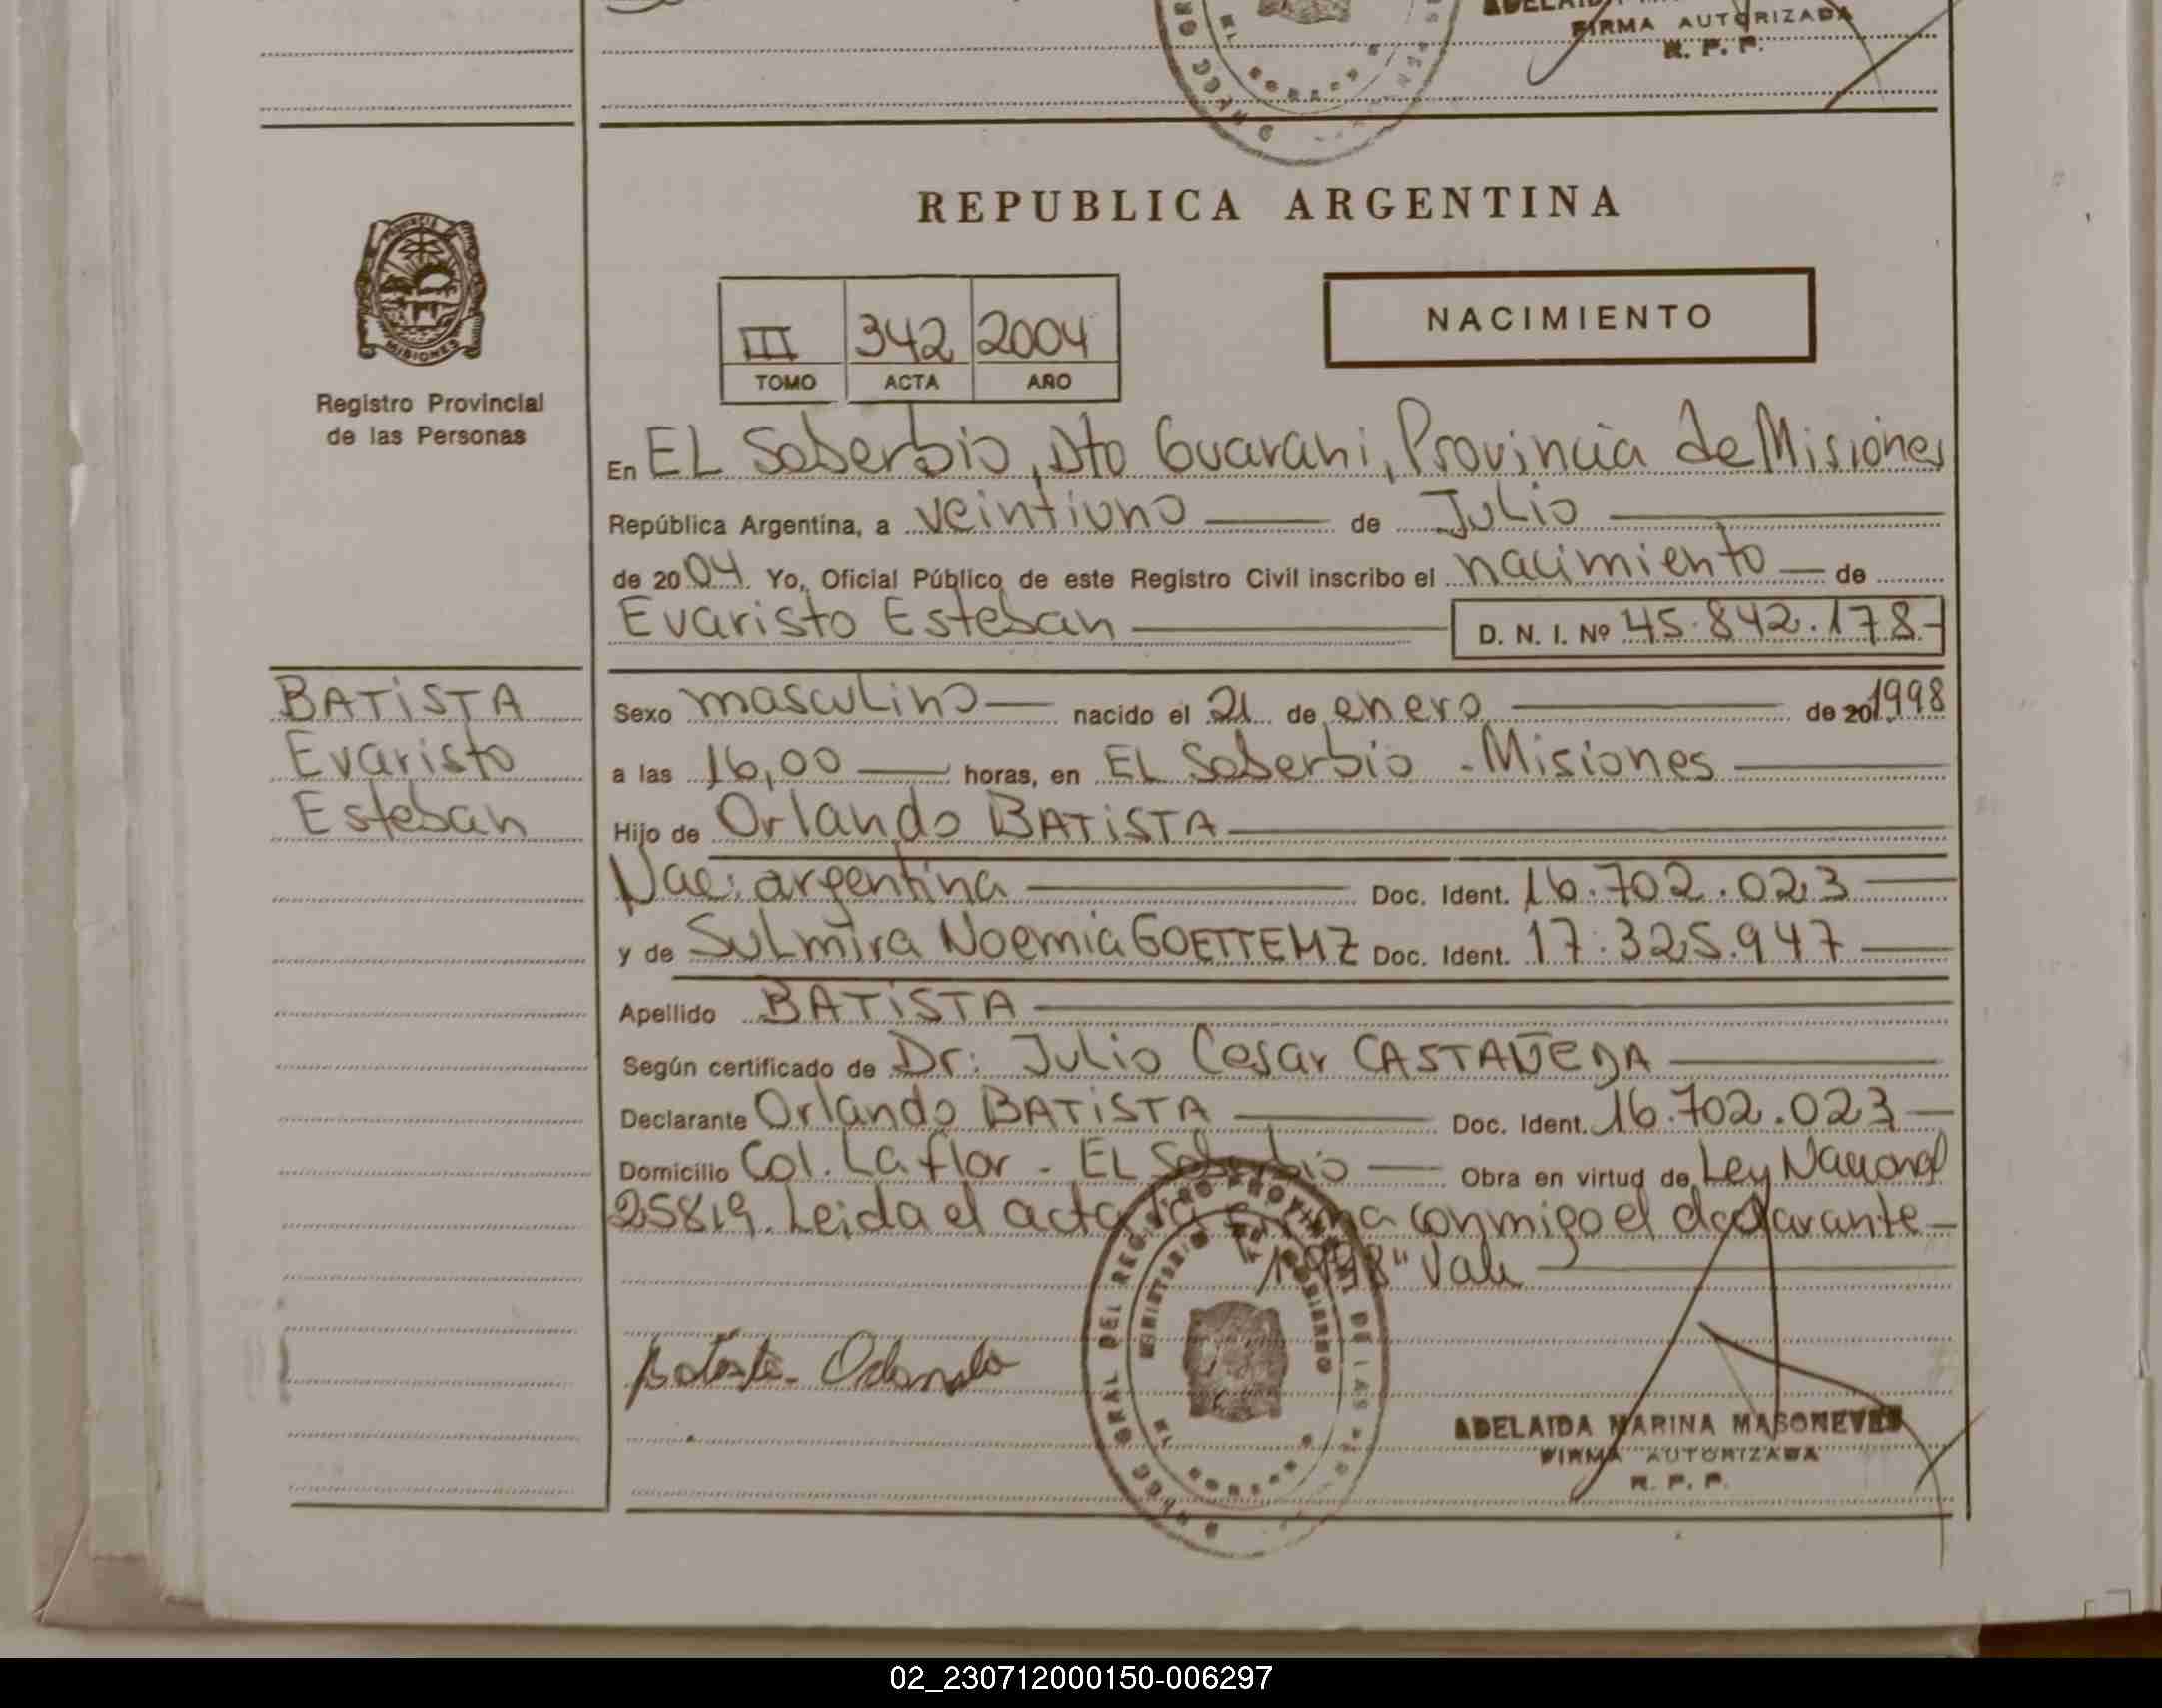 FIRMA AUTORIZADA
R. P. P.
REPUBLICA ARGENTINA
PROVINCIA
MISIONES
Registro Provincial
de las Personas
III 342 2004
TOMO ACTA AÑO
NACIMIENTO
En EL Soberbio, Dto Guarani, Provincia de Misiones
República Argentina, a veintiuno de Julio
de 2004 Yo, Oficial Público de este Registro Civil inscribo el nacimiento de
Evaristo Esteban D. N. I. Nº 45.842.178
BATISTA
Evaristo
Esteban
Sexo masculino nacido el 21 de enero de 20 1998
a las 16,00 horas, en EL Soberbio - Misiones
Hijo de Orlando BATISTA
Nac: argentina Doc. Ident. 16.702.023
y de Sulmira Noemia GOETTEMZ Doc. Ident. 17.325.947
Apellido BATISTA
Según certificado de Dr: Julio Cesar CASTAÑEDA
Declarante Orlando BATISTA Doc. Ident. 16.702.023
Domicilio Col. La flor - EL Soberbio Obra en virtud de Ley Nacional
25819. Leida el acta la firma conmigo el declarante
1998" Vale
ADELAIDA MARINA MASONEVES
FIRMA AUTORIZADA
R. P. P.
02_230712000150-006297